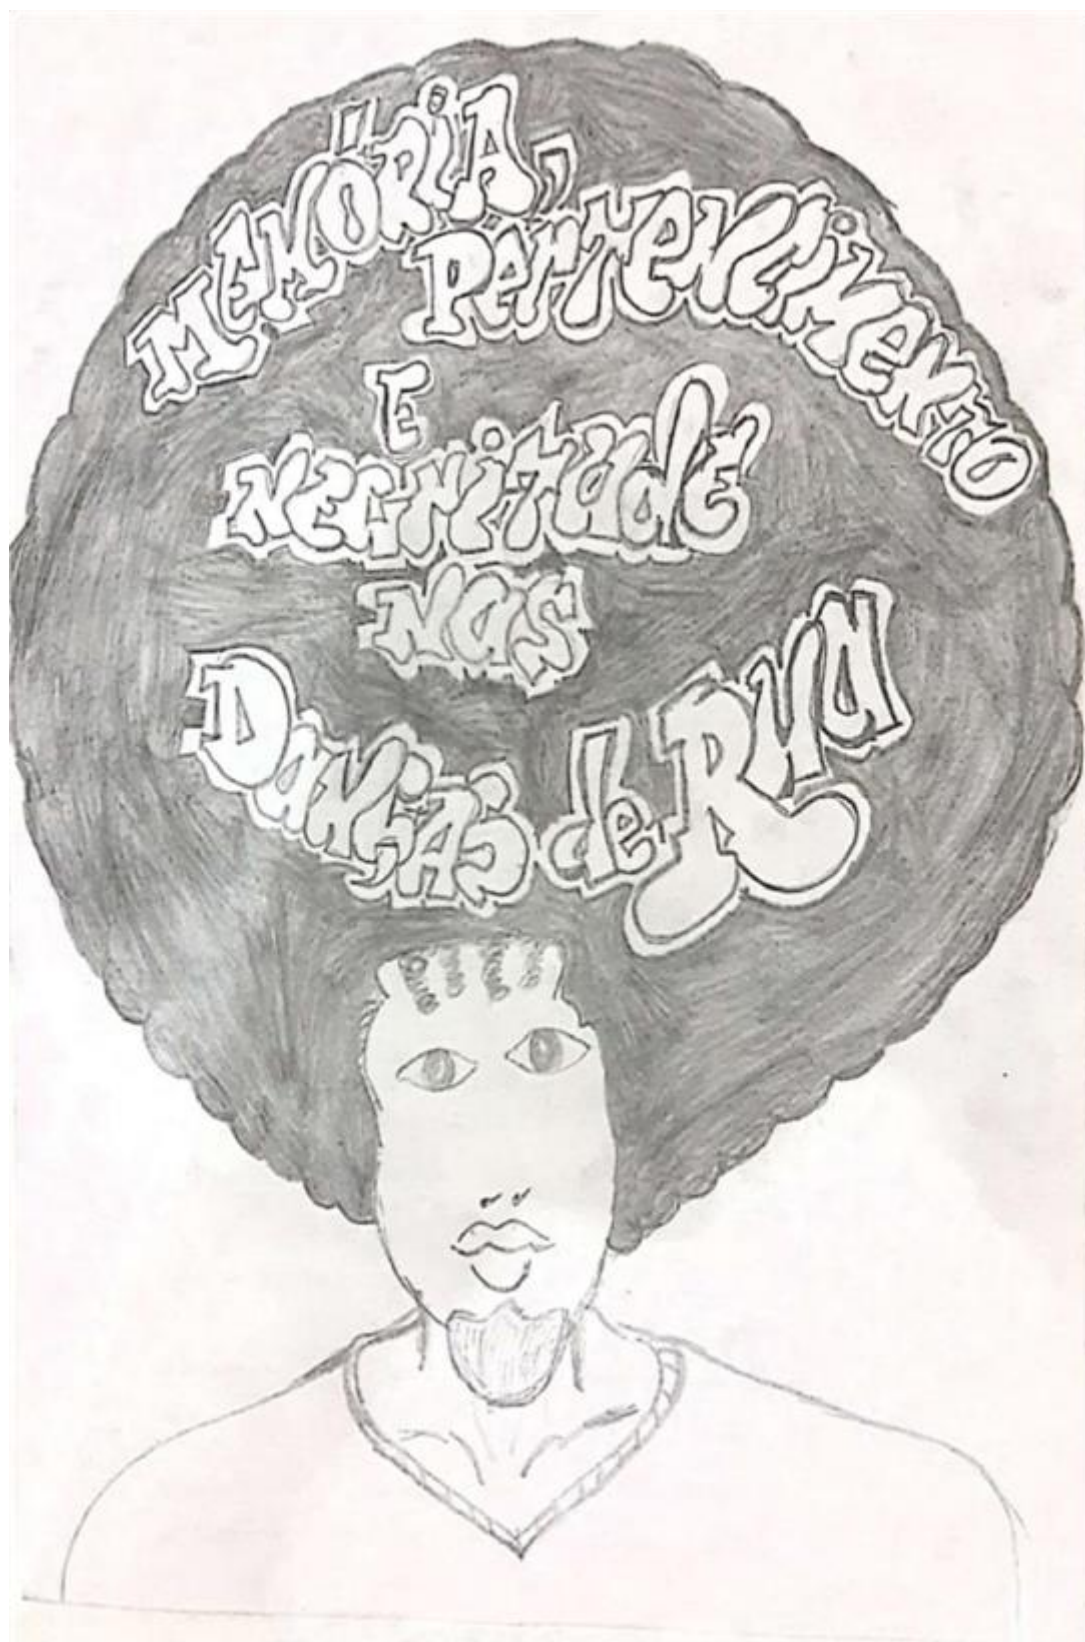 MEMÓRIA,
PERTENCIMENTO
E
NEGRITUDE
NAS
DANÇAS de RUA